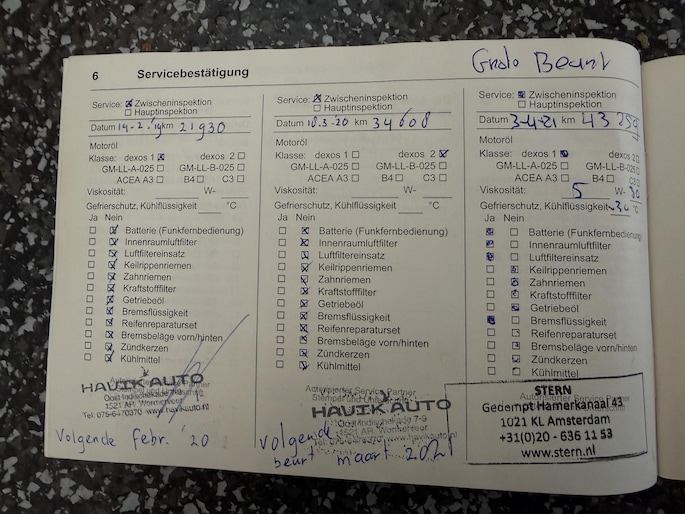 6 Servicebestätigung
Service: ☒ Zwischeninspektion
☐ Hauptinspektion
Datum 14-2-'19 km 21930
Motoröl
Klasse: dexos 1 ☒ dexos 2 ☐
GM-LL-A-025 ☐ GM-LL-B-025 ☐
ACEA A3 ☐ B4 ☐ C3 ☐
Viskosität: W-
Gefrierschutz, Kühlflüssigkeit °C
Ja Nein
☐ ☒ Batterie (Funkfernbedienung)
☐ ☒ Innenraumluftfilter
☐ ☒ Luftfiltereinsatz
☐ ☒ Keilrippenriemen
☐ ☒ Zahnriemen
☐ ☒ Kraftstofffilter
☐ ☒ Getriebeöl
☐ ☒ Bremsflüssigkeit
☐ ☒ Reifenreparaturset
☐ ☒ Bremsbeläge vorn/hinten
☐ ☒ Zündkerzen
☐ ☒ Kühlmittel
HAVIK AUTO
Oost-Indischekade 7-9
1521 AR Wormerveer
www.havikauto.nl
Volgende febr. '20
Service: ☒ Zwischeninspektion
☐ Hauptinspektion
Datum 18.3-20 km 34608
Motoröl
Klasse: dexos 1 ☐ dexos 2 ☒
GM-LL-A-025 ☐ GM-LL-B-025 ☐
ACEA A3 ☐ B4 ☐ C3 ☐
Viskosität: W-
Gefrierschutz, Kühlflüssigkeit °C
Ja Nein
☐ ☒ Batterie (Funkfernbedienung)
☐ ☒ Innenraumluftfilter
☐ ☒ Luftfiltereinsatz
☐ ☒ Keilrippenriemen
☐ ☒ Zahnriemen
☐ ☒ Kraftstofffilter
☐ ☒ Getriebeöl
☐ ☒ Bremsflüssigkeit
☐ ☒ Reifenreparaturset
☐ ☒ Bremsbeläge vorn/hinten
☐ ☒ Zündkerzen
☐ ☒ Kühlmittel
Autorisierter Service Partner
Stempel und
HAVIK AUTO
Oost-Indischekade 7-9
1521 AR Wormerveer
www.havikauto.nl
volgende
beurt maart 2021
Grote Beurt
Service: ☒ Zwischeninspektion
☐ Hauptinspektion
Datum 3-4-21 km 43
Motoröl
Klasse: dexos 1 ☒ dexos 2 ☐
GM-LL-A-025 ☐ GM-LL-B-025 ☐
ACEA A3 ☐ B4 ☐ C3 ☐
Viskosität: 5 W- 30
Gefrierschutz, Kühlflüssigkeit -30 °C
Ja Nein
☒ ☐ Batterie (Funkfernbedienung)
☒ ☐ Innenraumluftfilter
☒ ☐ Luftfiltereinsatz
☐ ☒ Keilrippenriemen
☐ ☒ Zahnriemen
☐ ☒ Kraftstofffilter
☐ ☒ Getriebeöl
☒ ☐ Bremsflüssigkeit
☐ ☒ Reifenreparaturset
☐ ☒ Bremsbeläge vorn/hinten
☐ ☒ Zündkerzen
☐ ☒ Kühlmittel
STERN
Gedempt Hamerkanaal 43
1021 KL Amsterdam
+31(0)20 - 635 11 53
www.stern.nl